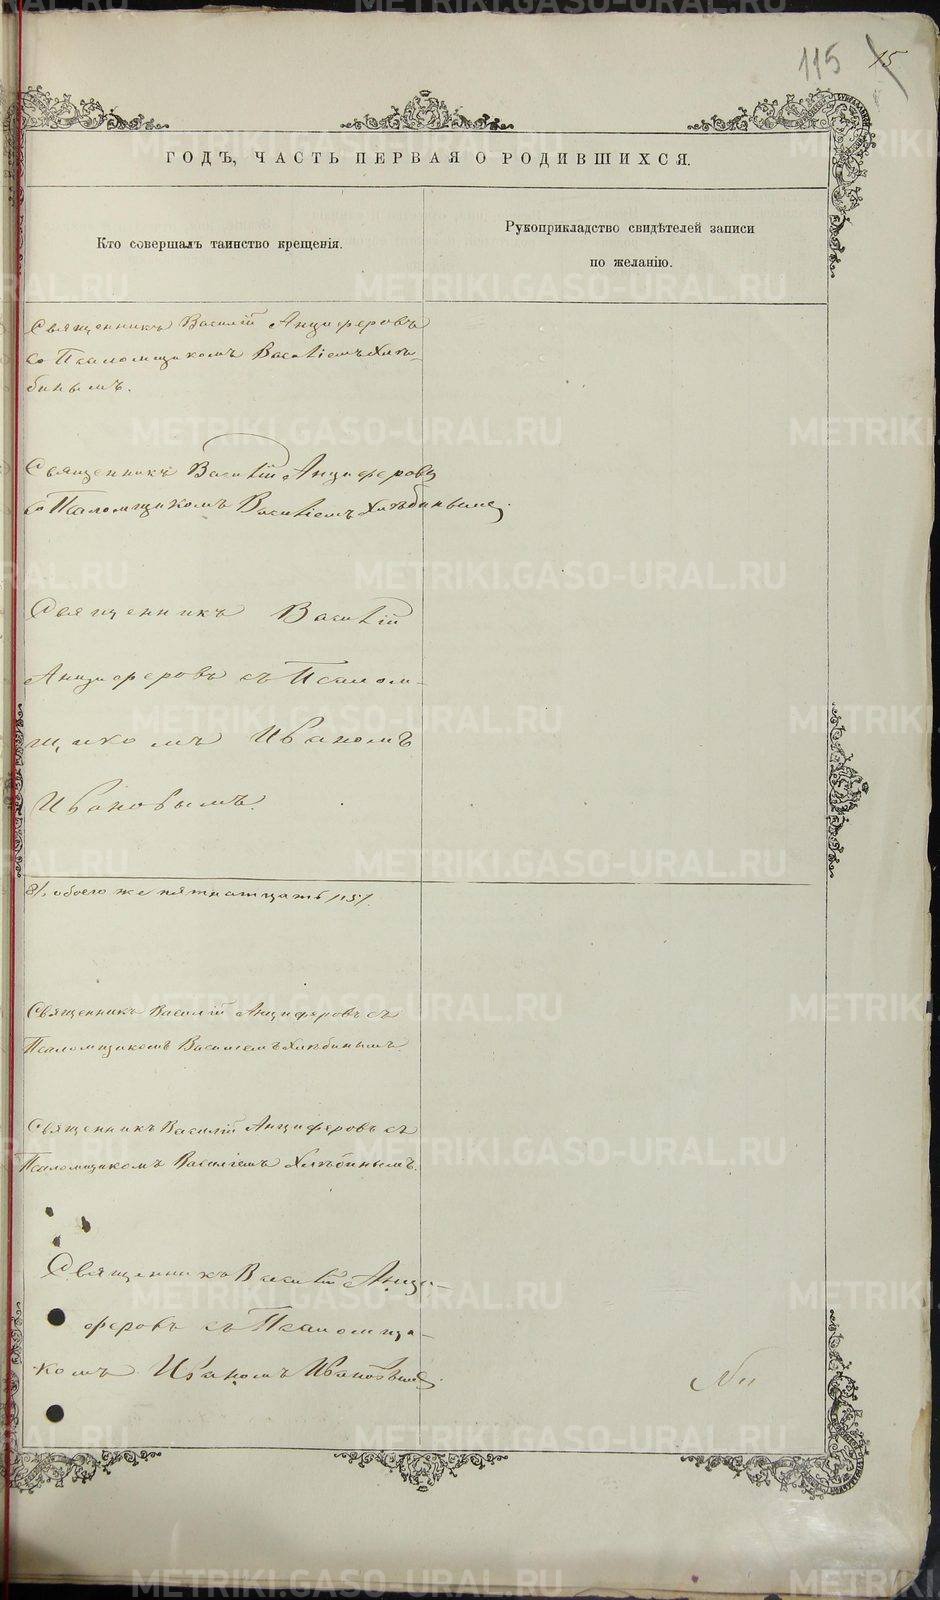 115 15
ГОДЪ, ЧАСТЬ ПЕРВАЯ О РОДИВШИХСЯ.
Кто совершалъ таинство крещенія.
Рукоприкладство свидѣтелей записи
по желанію.
Священникъ Василій Анциферовъ
со Псаломщикомъ Василіемъ Хлѣ-
бинымъ.
Священникъ Василій Анциферовъ
со Псаломщикомъ Василіемъ Хлѣбинымъ.
Священникъ Василій
Анциферовъ съ Псалом-
щикомъ Иваномъ
Ивановымъ.
обоего же пятнатцать /15/.
Священникъ Василій Анциферовъ съ
Псаломщикомъ Василіемъ Хлѣбинымъ.
Священникъ Василій Анциферовъ съ
Псаломщикомъ Василіемъ Хлѣбинымъ.
Священникъ Василій Анци-
феровъ съ Псаломщи-
комъ Иваномъ Ивановымъ.
METRIKI.GASO-URAL.RU